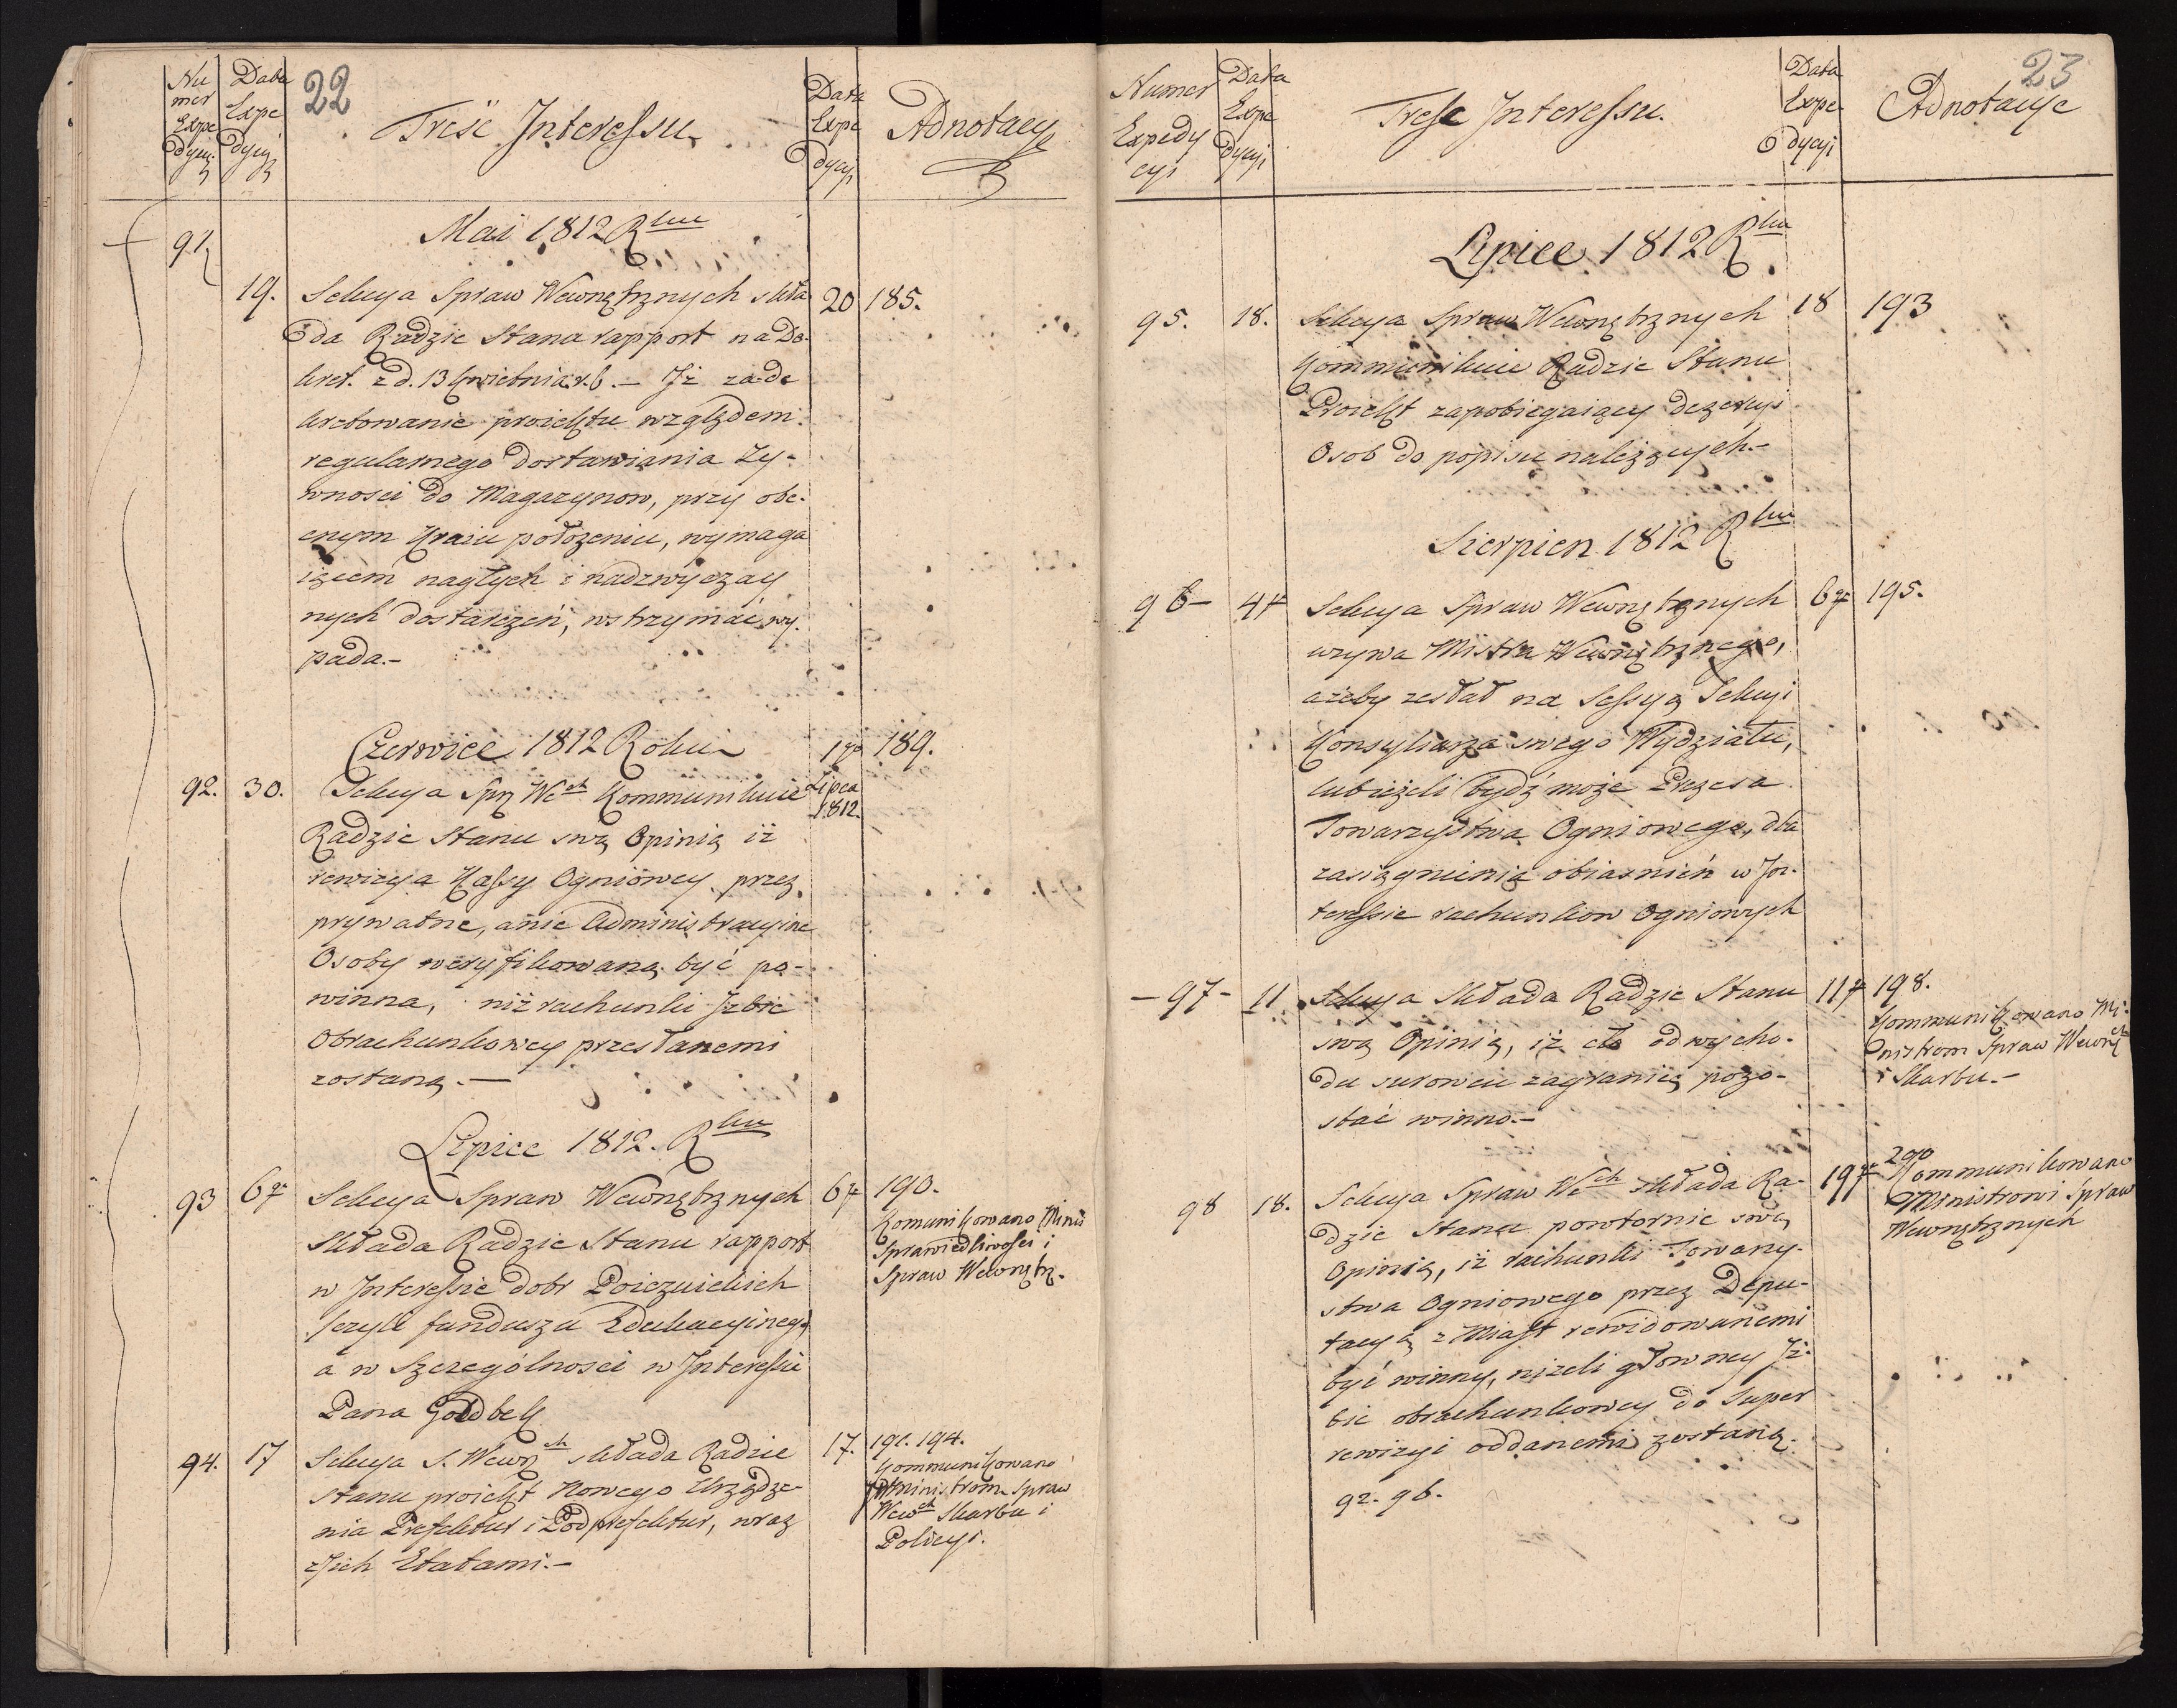 22
Nu
mer
Expe
dycyi
Data
Expe
dycyi
Treść Interessu
Data
Expe
dycyi
Adnotacye
Mai 1812 Rku
91
19. Sekcya Spraw Wewnętrznych skła 20 185.
da Radzie Stanu rapport na De-
kret. z d. 13 Kwietnia r. b. – Iż zade
kretowanie proiektu względem
regularnego dostawiania Ży-
wnosci do Magazynow, przy obe-
cnym Kraiu położeniu, wymaga
iącem nagłych i nadzwyczay
nych dostarczeń, wstrzymać wy-
pada.–
Czerwiec 1812 Roku 17 189.
92. 30. Sekcya Spr. Wch Kommunikuie Lipca
1812.
Radzie Stanu swą Opinią iż
rewizya Kassy Ogniowey przez
prywatne, a nie Administracyine
Osoby weryfikowaną być po-
winna, niż rachunki Izbie
Obrachunkowey przesłanemi
zostaną.–
Lipiec 1812. Rku
93 6go Sekcya Spraw Wewnętrznych 6go 190.
składa Radzie Stanu rapport
w Interessie dobr Poiezuickich
czyli funduszu Edukacyinego
a w Szczególnosci w Interessie
Pana Goldbek
Komunikowano Minis
Sprawiedliwosci i
Spraw Wewnętrz.
94. 17 Sekcya S. Wewnch składa Radzie 17. 191. 194.
Stanu proiekt Nowego Urządze-
nia Prefektur i Podprefektur, wraz
z Ich Etatami.–
Kommunikowano
Ministrom Spraw
Wewch Skarbu i
Policyi.
23
Numer
Expedy
cyi
Data
Expe
dycyi
Tresc Interessu.
Data
Expe
dycyi
Adnotacye
Lipiec 1812 Rku
95. 18. Sekcya Spraw Wewnętrznych 18 193
Kommunikuie Radzie Stanu
Proiekt zapobiegaiący dezercyi
Osob do popisu należących.–
Sierpien 1812 Rku
96– 4go Sekcya Spraw Wewnętrznych 6go 195.
wzywa Mistra Wewnętrznego,
ażeby zesłał na Sessyą Sekcyi
Konsyliarza swego Wydziału,
lub ieżeli bydź może Prezesa
Towarzystwa Ogniowego, dla
zasiągnienia obiasnień w In-
teressie rachunkow Ogniowych
–97– 11. Sekcya składa Radzie Stanu 11go 198.
swą Opinią, iż cło od wycho-
du surowcu zagranicę pozo-
stać winno.–
Kommunikowano Mi-
nistrom Spraw Wewnch
i Skarbu.–
98 18. Sekcya Spraw Wch składa Ra- 19go
dzie Stanu powtornie swą
Opinią, iż rachunki Towarzy-
stwa Ogniowego przez Depu-
tacyą z Miast rewidowanemi
być winny, niżeli głowney Iz-
bie obrachunkowey do Super
rewizyi oddanemi zostaną.
92. 96.
200
Kommunikowano
Ministrowi Spraw
Wewnętrznych